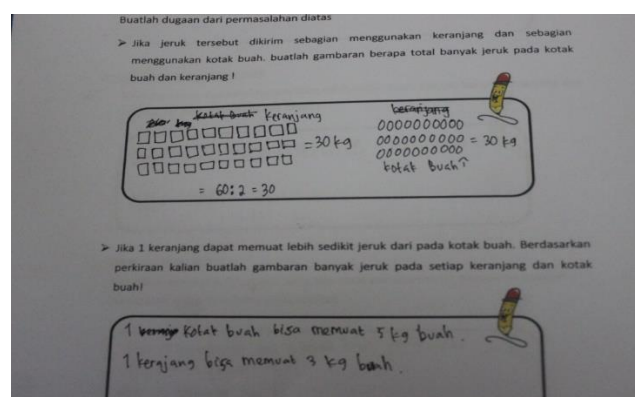 Buatlah dugaan dari permasalahan diatas
➢ Jika jeruk tersebut dikirim sebagian menggunakan keranjang dan sebagian
menggunakan kotak buah. buatlah gambaran berapa total banyak jeruk pada kotak
buah dan keranjang !
kotak buah keranjang
= 30 kg
= 60 : 2 = 30
keranjang
= 30 kg
kotak buah
➢ Jika 1 keranjang dapat memuat lebih sedikit jeruk dari pada kotak buah. Berdasarkan
perkiraan kalian buatlah gambaran banyak jeruk pada setiap keranjang dan kotak
buah!
1 kotak buah bisa memuat 5 kg buah.
1 keranjang bisa memuat 3 kg buah.